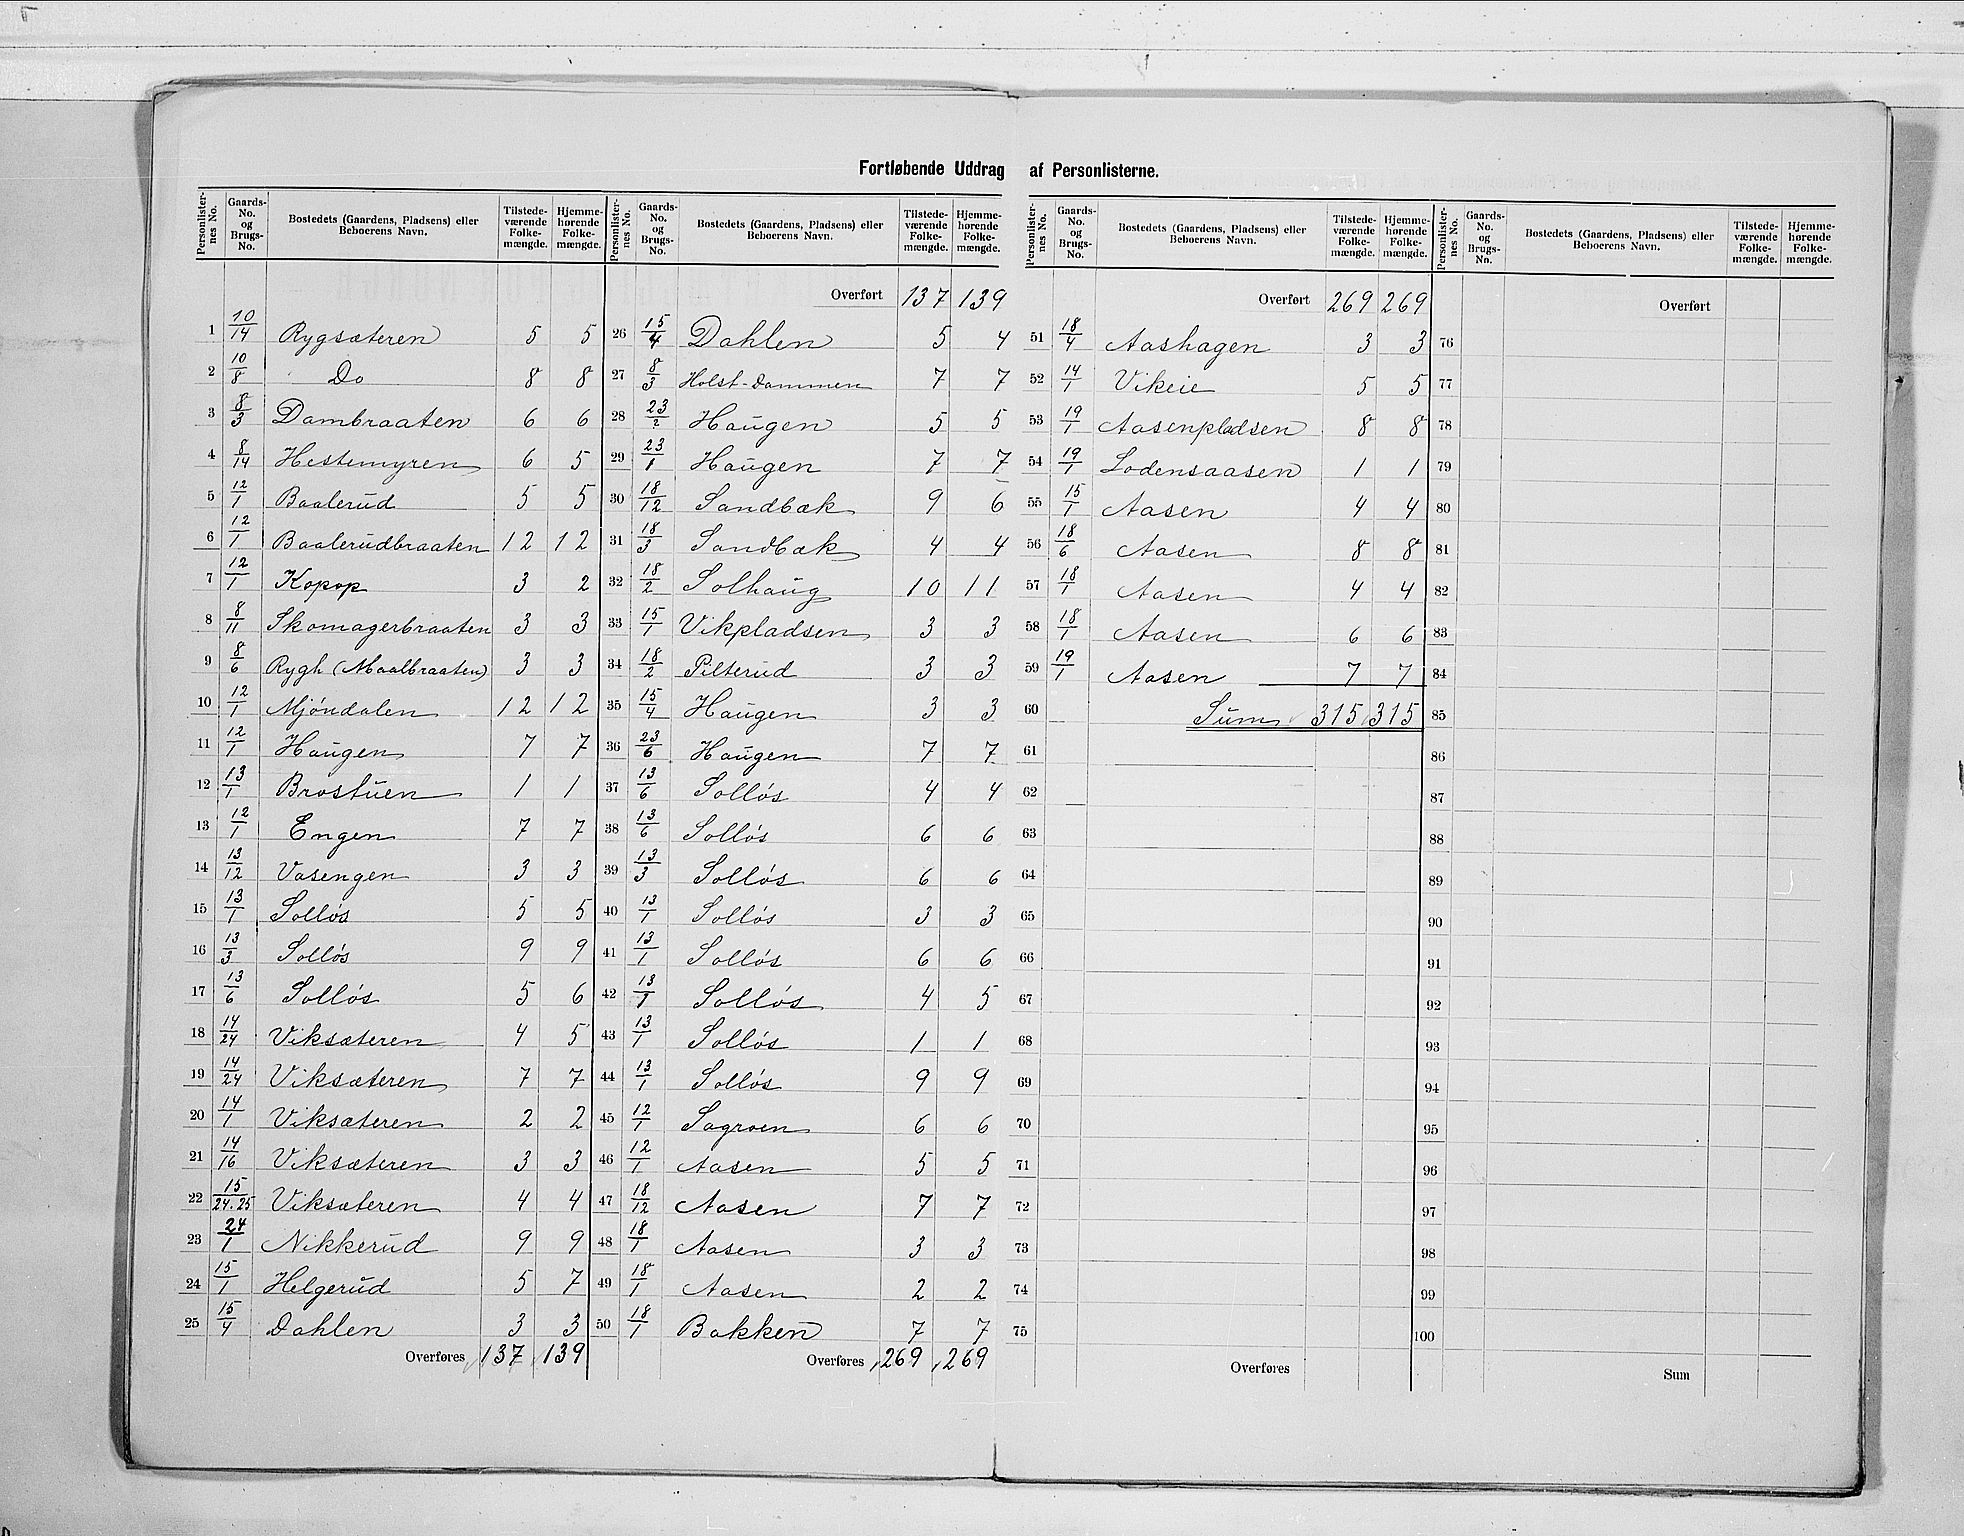 Fortløbende Uddrag af Personlisterne.
Personlisternes No. | Gaards-No. og Brugs-No. | Bostedets (Gaardens, Pladsens) eller Beboerens Navn. | Tilstedeværende Folkemængde. | Hjemmehørende Folkemængde.
1 10/14 Rygsæteren 5 5
2 10/8 Do 8 8
3 8/3 Dambraaten 6 6
4 8/14 Hestemyren 6 5
5 12/1 Baalerud 5 5
6 12/1 Baalerudbraaten 12 12
7 12/1 Kopop 3 2
8 8/11 Skomagerbraaten 3 3
9 8/6 Rygh (Maalbraaten) 3 3
10 12/1 Mjöndalen 12 12
11 12/1 Haugen 7 7
12 13/1 Brostuen 1 1
13 12/1 Engen 7 7
14 13/12 Vasengen 3 3
15 13/1 Solløs 5 5
16 13/3 Solløs 9 9
17 13/6 Solløs 5 6
18 14/24 Viksæteren 4 5
19 14/24 Viksæteren 7 7
20 14/1 Viksæteren 2 2
21 14/16 Viksæteren 3 3
22 15/24.25 Viksæteren 4 4
23 24/1 Nikkerud 9 9
24 15/1 Helgerud 5 7
25 15/4 Dahlen 3 3
Overføres 137 139
Personlisternes No. | Gaards-No. og Brugs-No. | Bostedets (Gaardens, Pladsens) eller Beboerens Navn. | Tilstedeværende Folkemængde. | Hjemmehørende Folkemængde.
Overført 137 139
26 15/4 Dahlen 5 4
27 8/3 Holst-Dammen 7 7
28 23/2 Haugen 5 5
29 23/1 Haugen 7 7
30 18/12 Sandbæk 9 6
31 18/3 Sandbæk 4 4
32 18/2 Solhaug 10 11
33 15/1 Vikpladsen 3 3
34 18/2 Pilterud 3 3
35 15/4 Haugen 3 3
36 23/6 Haugen 7 7
37 13/6 Solløs 4 4
38 13/6 Solløs 6 6
39 13/3 Solløs 6 6
40 13/1 Solløs 3 3
41 13/1 Solløs 6 6
42 13/1 Solløs 4 5
43 13/1 Solløs 1 1
44 13/1 Solløs 9 9
45 12/1 Sagroen 6 6
46 12/1 Aasen 5 5
47 18/12 Aasen 7 7
48 18/1 Aasen 3 3
49 18/1 Aasen 2 2
50 18/1 Bakken 7 7
Overføres 269 269
Personlisternes No. | Gaards-No. og Brugs-No. | Bostedets (Gaardens, Pladsens) eller Beboerens Navn. | Tilstedeværende Folkemængde. | Hjemmehørende Folkemængde.
Overført 269 269
51 18/4 Aashagen 3 3
52 14/1 Vikeie 5 5
53 19/1 Aasenpladsen 8 8
54 19/1 Lodensaasen 1 1
55 15/1 Aasen 4 4
56 18/6 Aasen 8 8
57 18/1 Aasen 4 4
58 18/1 Aasen 6 6
59 19/1 Aasen 7 7
60 Sum 315 315
61
62
63
64
65
66
67
68
69
70
71
72
73
74
75
Overføres
Personlisternes No. | Gaards-No. og Brugs-No. | Bostedets (Gaardens, Pladsens) eller Beboerens Navn. | Tilstedeværende Folkemængde. | Hjemmehørende Folkemængde.
Overført
76
77
78
79
80
81
82
83
84
85
86
87
88
89
90
91
92
93
94
95
96
97
98
99
100
Sum